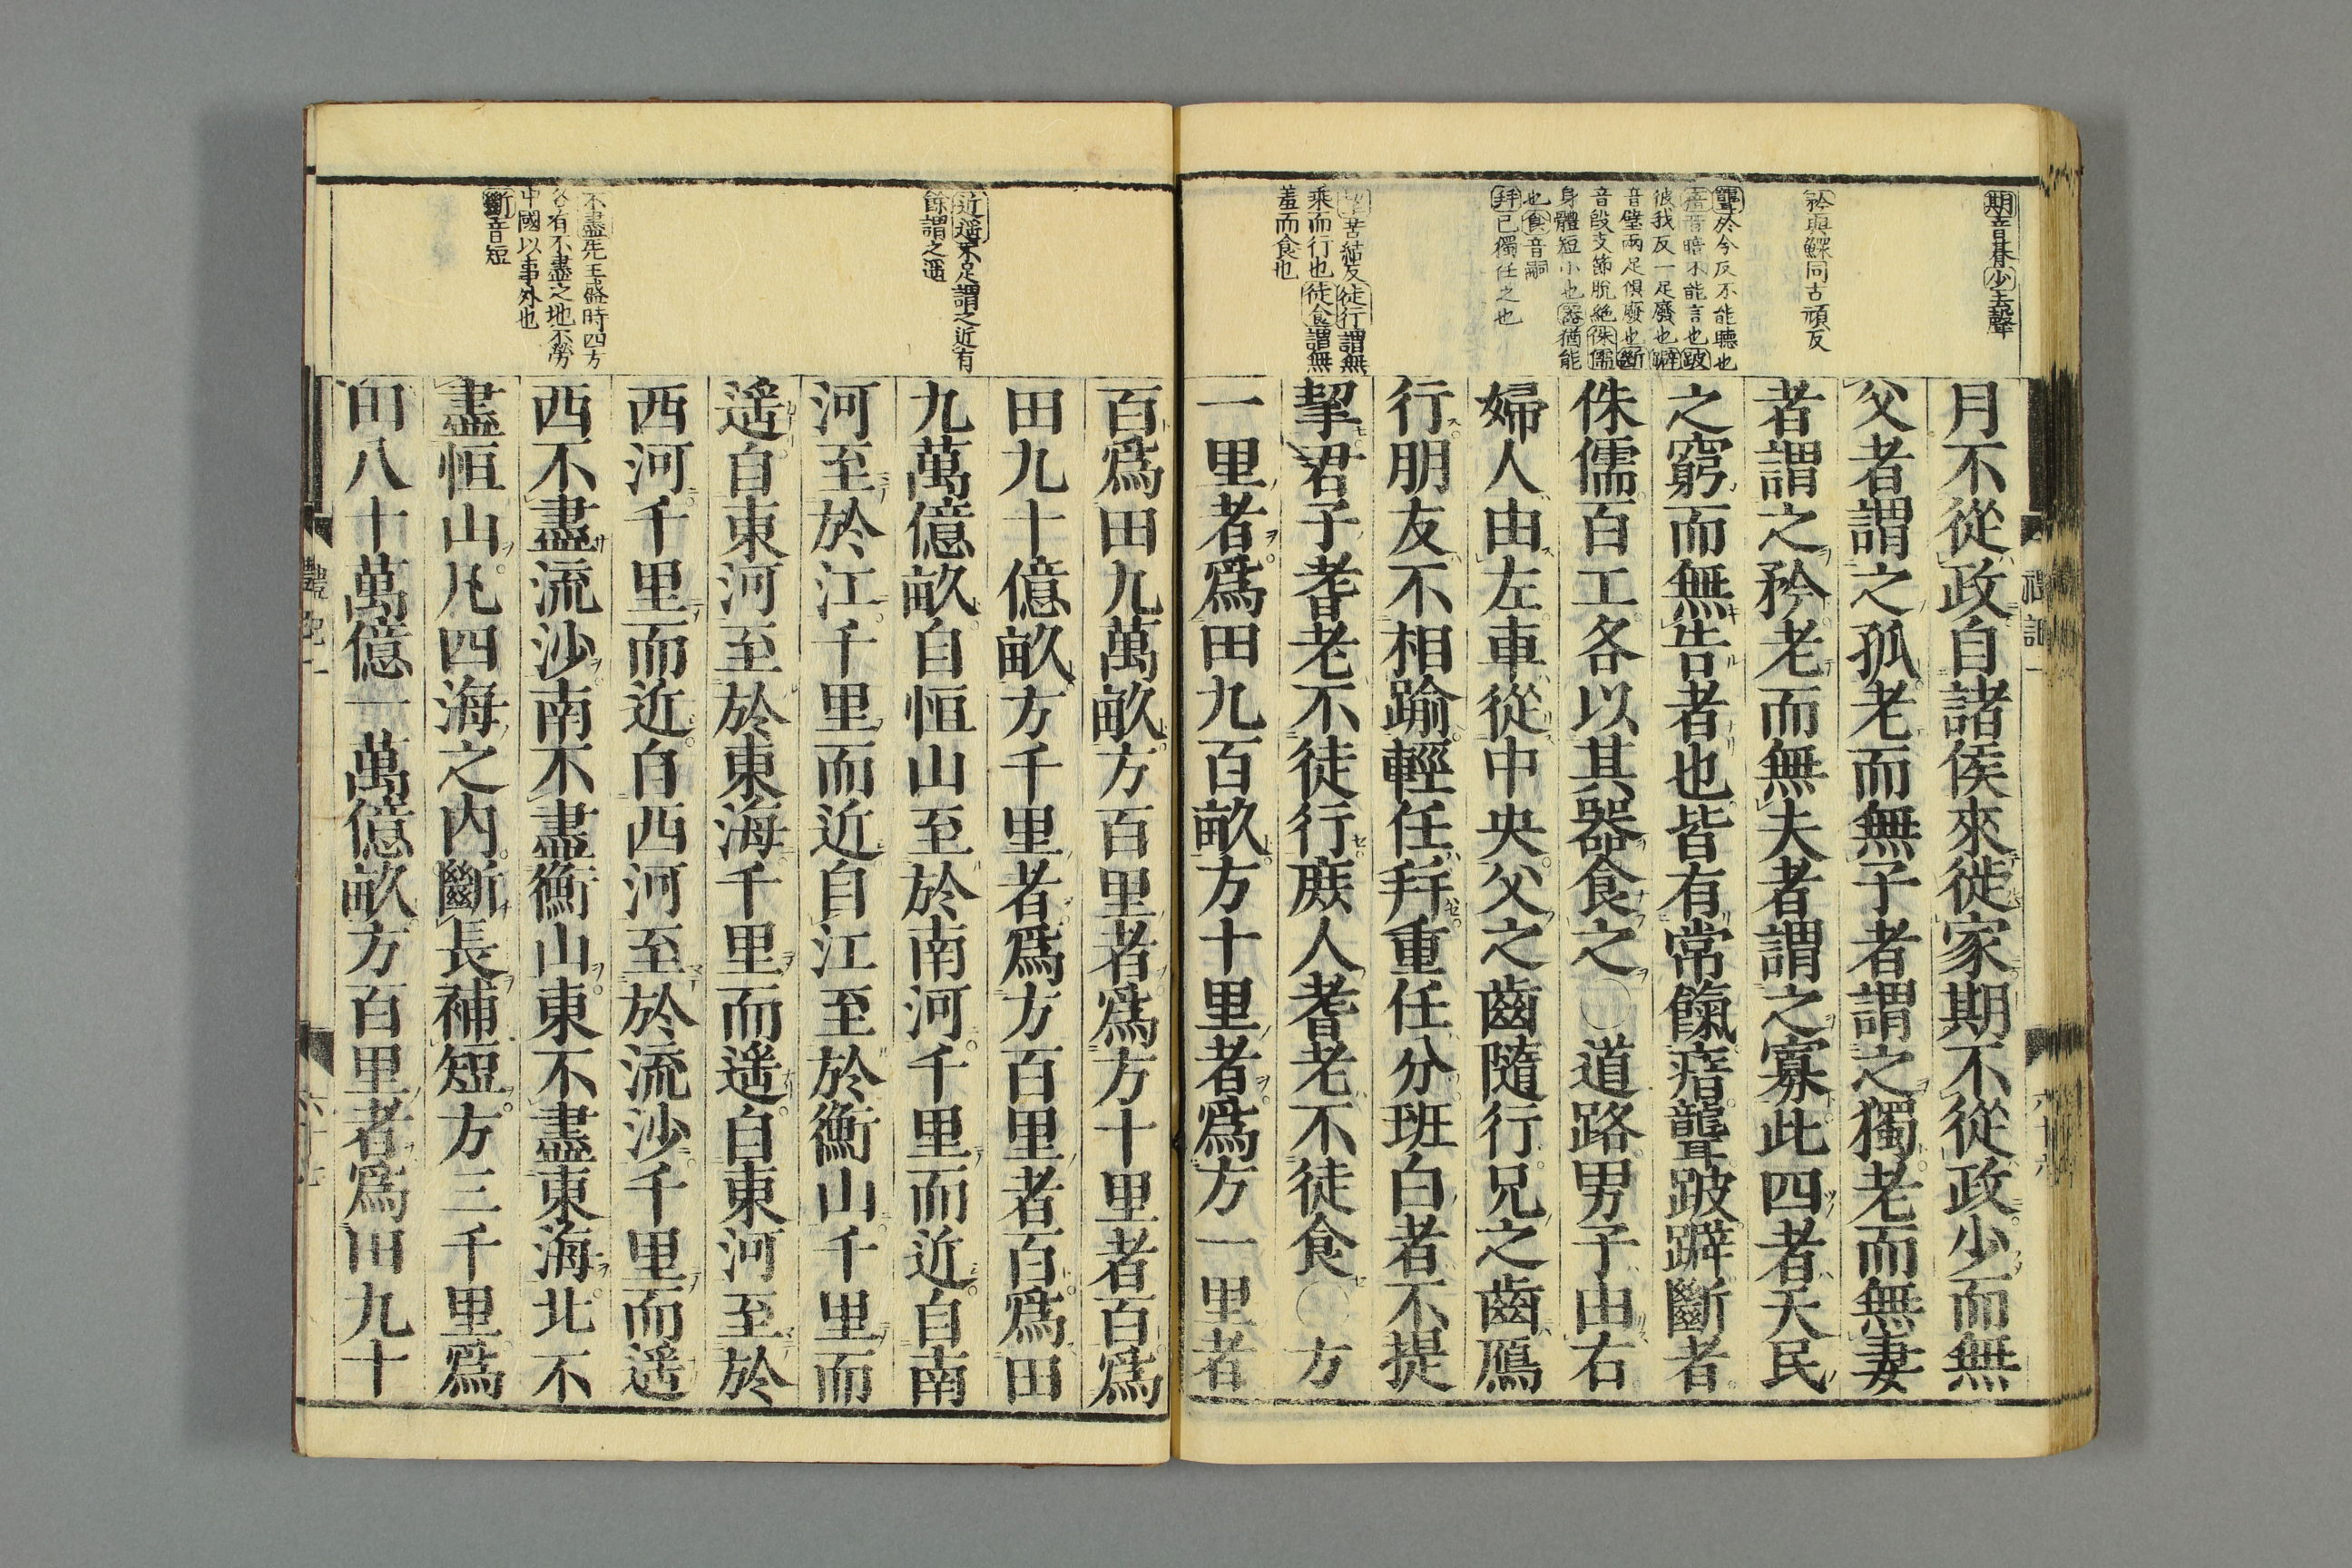 期音朞少去聲
矜與鰥同古頑反
聾於今反不能聽也
瘖音暗不能言也跛
彼我反一足廢也躃
音壁兩足俱廢也斷
音段支節脫絶侏儒
身體短小也器猶能
也食音嗣
幷已獨任之也
挈苦結反徒行謂無
乘而行也徒食謂無
羞而食也
月不從政自諸侯來徙家期不從政少而無
父者謂之孤老而無子者謂之獨老而無妻
者謂之矜老而無夫者謂之寡此四者天民
之窮而無告者也皆有常餼瘖聾跛躃斷者
侏儒百工各以其器食之〇道路男子由右
婦人由左車從中央父之齒隨行兄之齒鴈
行朋友不相踰輕任幷重任分班白者不提
挈君子耆老不徒行庶人耆老不徒食〇方
一里者爲田九百畝方十里者爲方一里者
禮記一
近遥不足謂之近有
餘謂之遥
不盡先王盛時四方
各有不盡之地不勞
中國以事外也
斷音短
百爲田九萬畝方百里者爲方十里者百爲
田九十億畝方千里者爲方百里者百爲田
九萬億畝自恒山至於南河千里而近自南
河至於江千里而近自江至於衡山千里而
遥自東河至於東海千里而遥自東河至於
西河千里而近自西河至於流沙千里而遥
西不盡流沙南不盡衡山東不盡東海北不
盡恒山凡四海之内斷長補短方三千里爲
田八十萬億一萬億畝方百里者爲田九十
禮記一